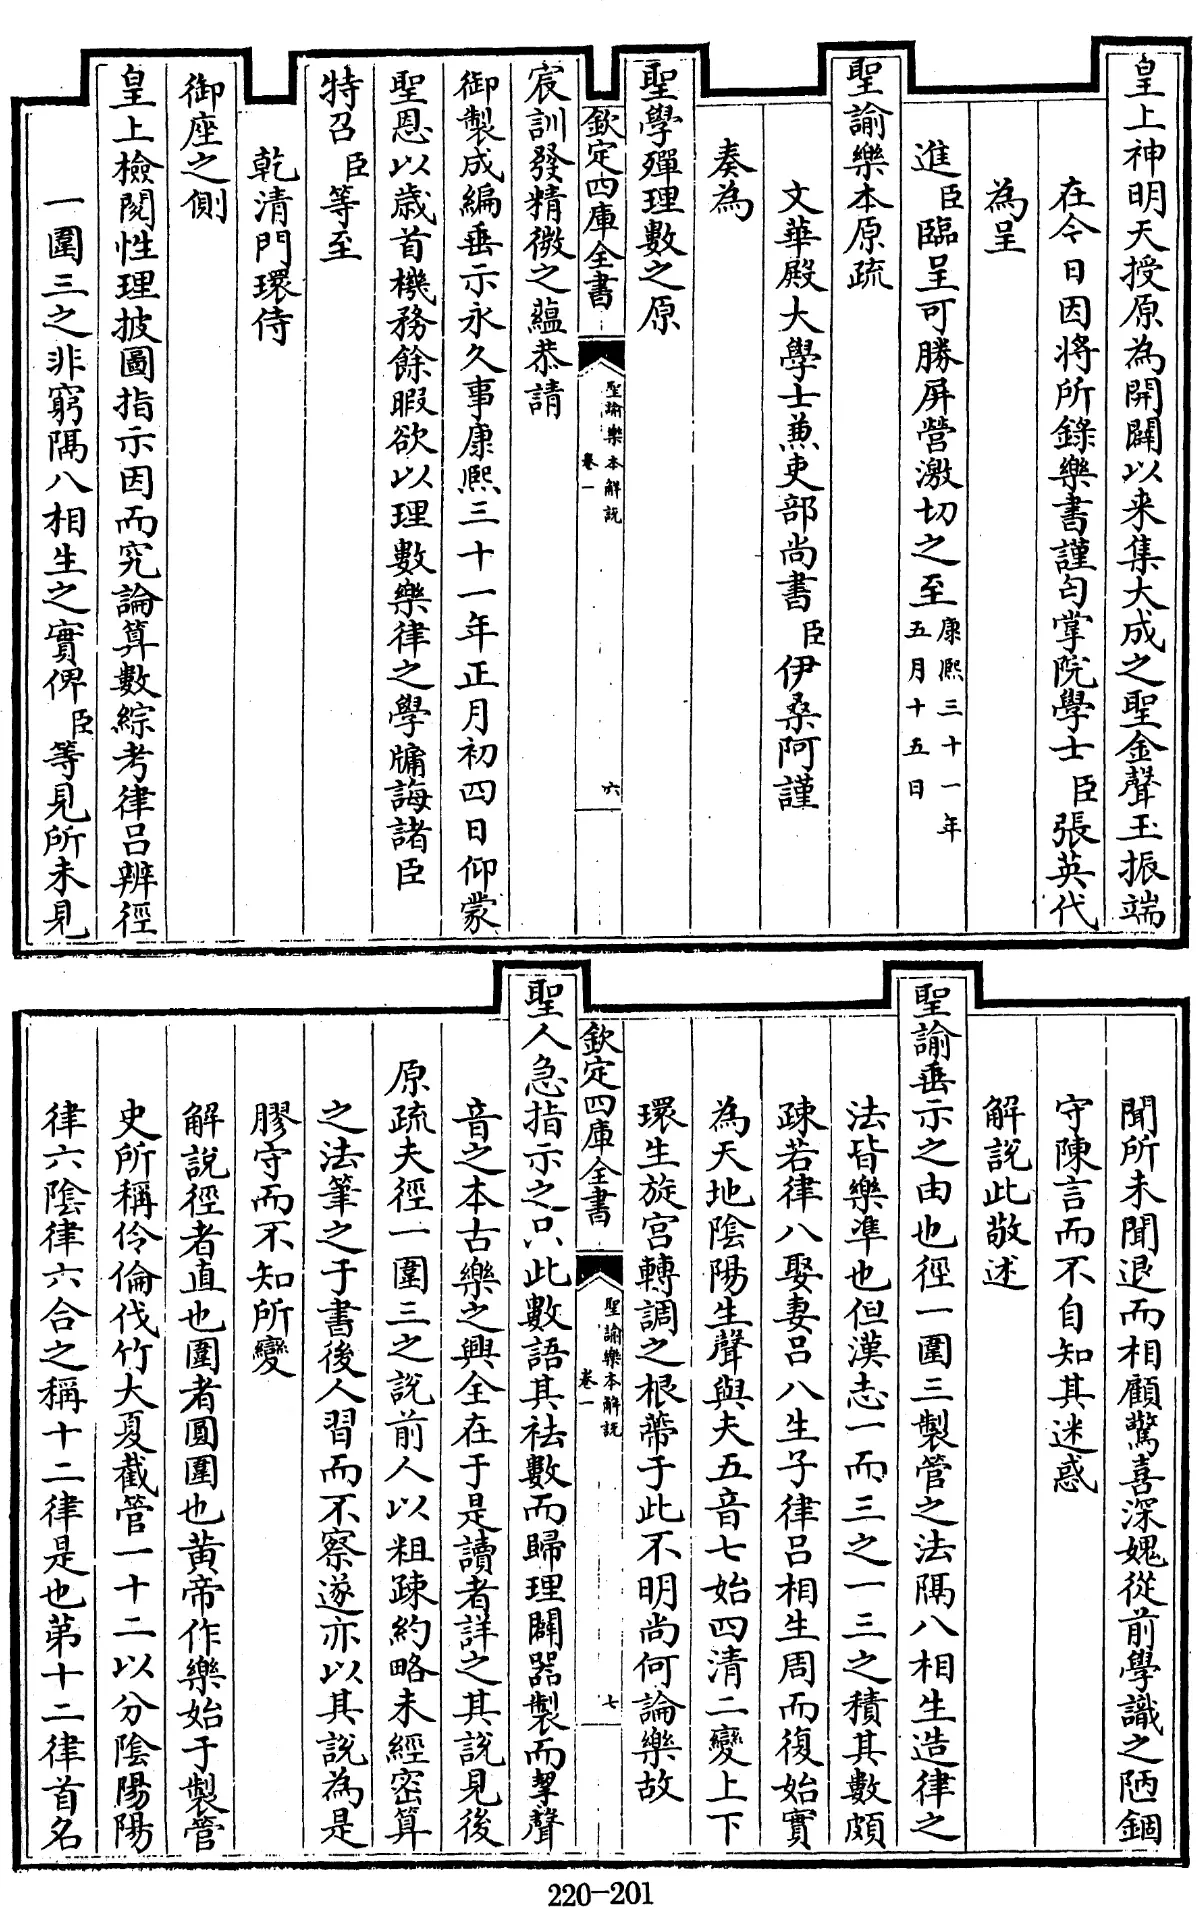 皇上神明天授原為開闢以来集大成之聖金聲玉振端
在今日因將所錄樂書謹匄掌院學士臣張英代
為呈
進臣臨呈可勝屏營激切之至康熙三十一年五月十五日
聖諭樂本原疏
文華殿大學士兼吏部尚書臣伊桑阿謹
奏為
聖學殫理數之原
欽定四庫全書 聖諭樂本解説 卷一 六
宸訓發精微之蘊恭請
御製成編垂示永久事康熙三十一年正月初四日仰蒙
聖恩以歲首機務餘暇欲以理數樂律之學牖誨諸臣
特召臣等至
乾清門環侍
御座之側
皇上檢閱性理披圖指示因而究論算數綜考律呂辨徑
一圍三之非窮隔八相生之實俾臣等見所未見
聞所未聞退而相顧驚喜深媿從前學識之陋錮
守陳言而不自知其迷惑
解說此敬述
聖諭垂示之由也徑一圍三製管之法隔八相生造律之
法皆樂準也但漢志一而三之一三之積其數頗
疎若律八娶妻呂八生子律呂相生周而復始實
為天地陰陽生聲與夫五音七始四清二變上下
環生旋宮轉調之根蔕于此不明尚何論樂故
欽定四庫全書 聖諭樂本解説 卷一 七
聖人急指示之只此數語其祛數而歸理闢器製而挈聲
音之本古樂之興全在于是讀者詳之其說見後
原疏夫徑一圍三之說前人以粗疎約略未經密算
之法筆之于書後人習而不察遂亦以其說為是
膠守而不知所變
解說徑者直也圍者圓圍也黄帝作樂始于製管
史所稱伶倫伐竹大夏截管一十二以分陰陽陽
律六陰律六合之稱十二律是也第十二律首名
220-201